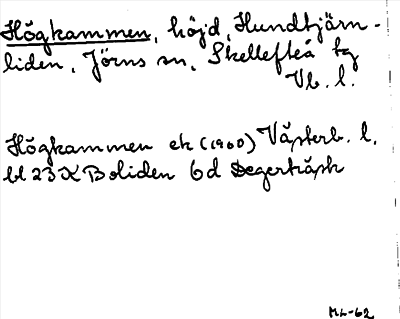 Högkammen, höjd, Hundtjärn-
liden, Jörns sn, Skellefteå tg
Vb. l.
Högkammen ek (1960) Västerb. l.
bl 23K Boliden 6d Degerträsk
ML-62